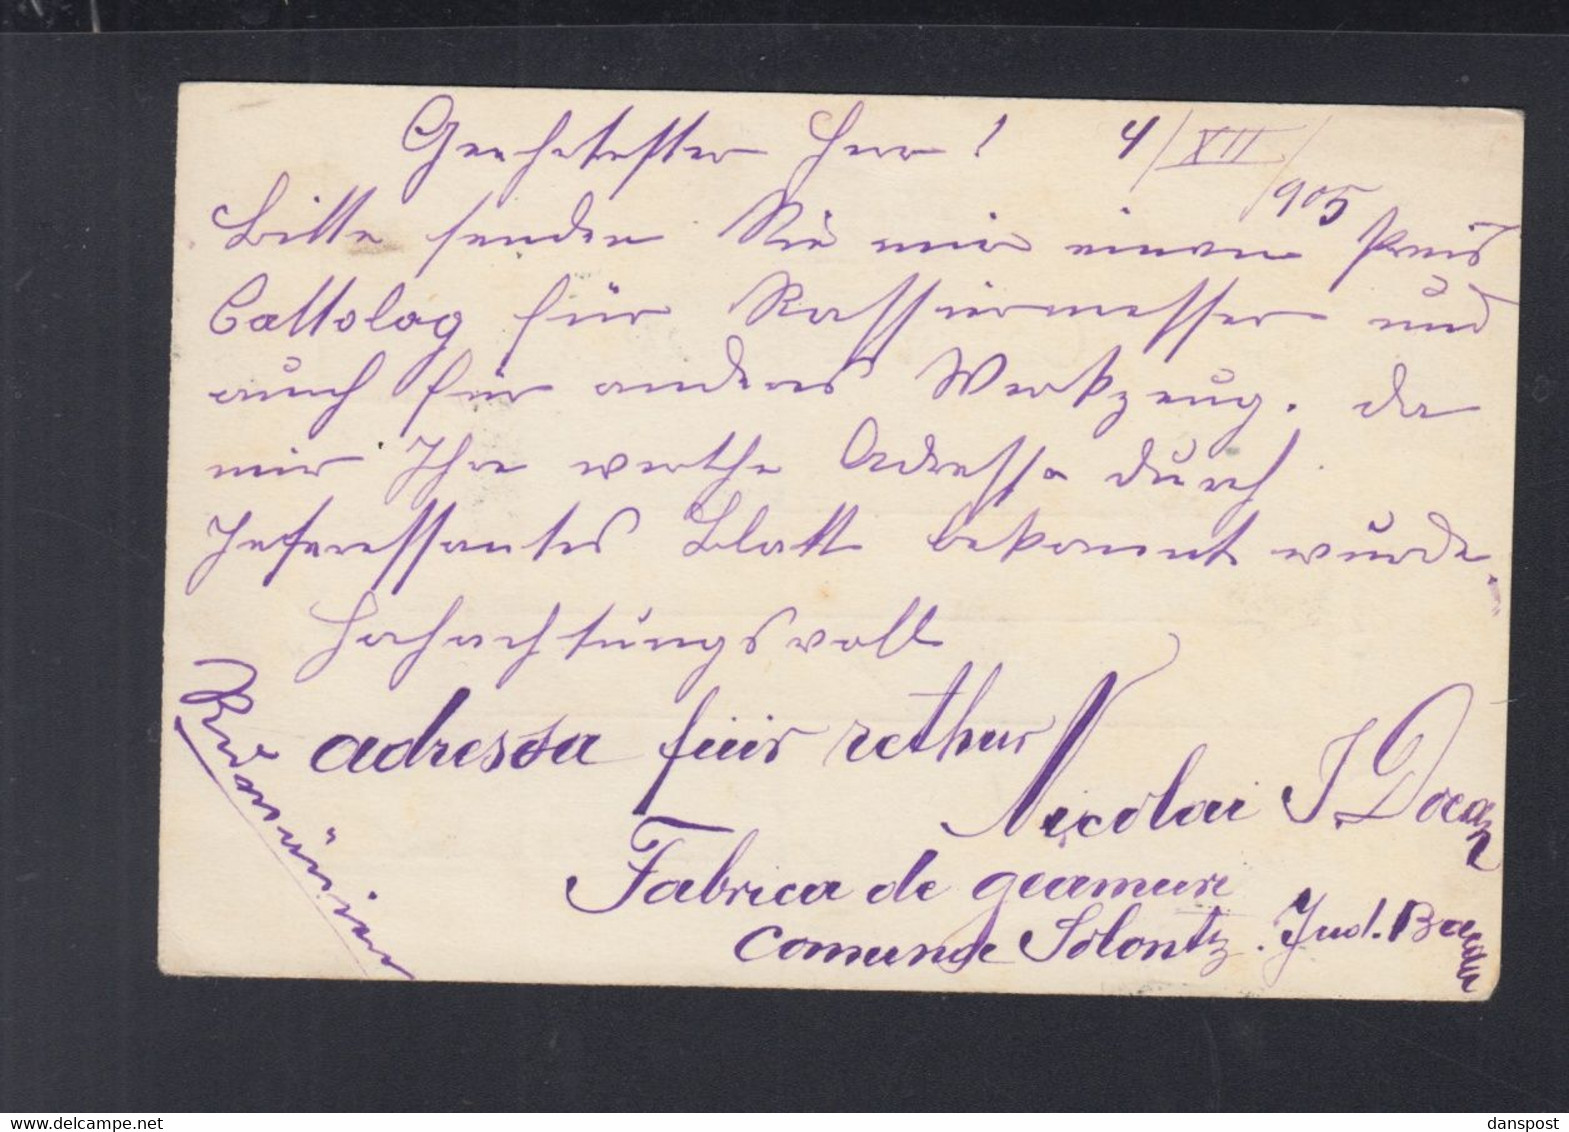 Geehrtester Herr! 4/XII/905
Bitte senden Sie mir einen Preis
Cattolog für Rassiermesser und
auch für anderes Werkzeug. da
mir Ihre werthe Adresse durch
Interessantes Blatt bekannt wurde.
Hochachtungsvoll
adressa füir rethur
Nicolai I. Docan
Fabrica de geamuri
comuna Solontz. Jud. Bacău
Rumänien
danspost